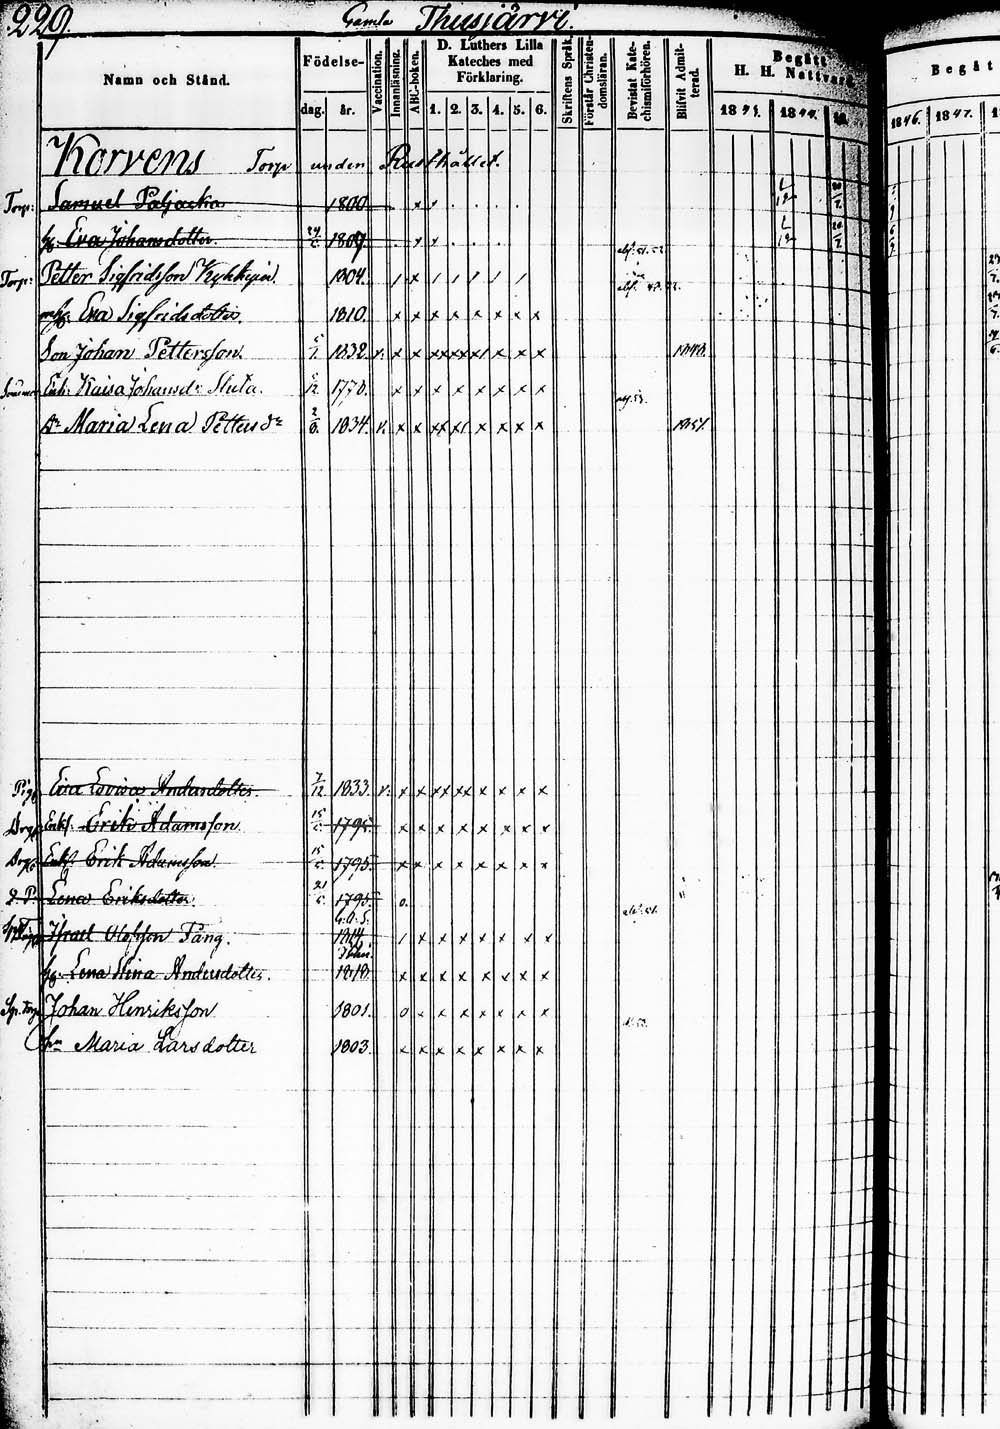 229. Gamla Thusjärvi.
Namn och Stånd. Födelse- dag. år. Vaccination. Innanläsning. ABC-boken. D. Luthers Lilla Kateches med Förklaring. 1. 2. 3. 4. 5. 6. Skriftens Språk. Förstår Christendomsläran. Bevistat Katechismiförhören. Blifvit Admitterad. Begått H. H. Nattvard 1843. 1844. 18 Begåt 1846. 1847.
Korvens Torp under Rusthållet.
Torp: Samuel Paljacka 1800
h. Eva Johansdotter. 24/5 1809
Torp: Petter Sigfridsson Kykkyin 1804.
h. Eva Sigfridsdotter. 1810.
Son Johan Pettersson. 1832. v. 1848.
Enk: Kaisa Johansdr Sluta. 12 1770.
Dr Maria Lena Petters dr 2/8 1834. v. 1851.
Pig Eva Lovisa Andersdotter. 7/12 1833. v.
Drg Enkl. Erik Adamsson 15 1795.
Drg Enkl Erik Adamsson 15 1795.
Lena Eriksdotter. 21 1795
Israel Olofsson Tång. 1814
h. Lena Stina Andersdotter. 1818.
Johan Henriksson 1801.
Hu Maria Larsdotter 1803.